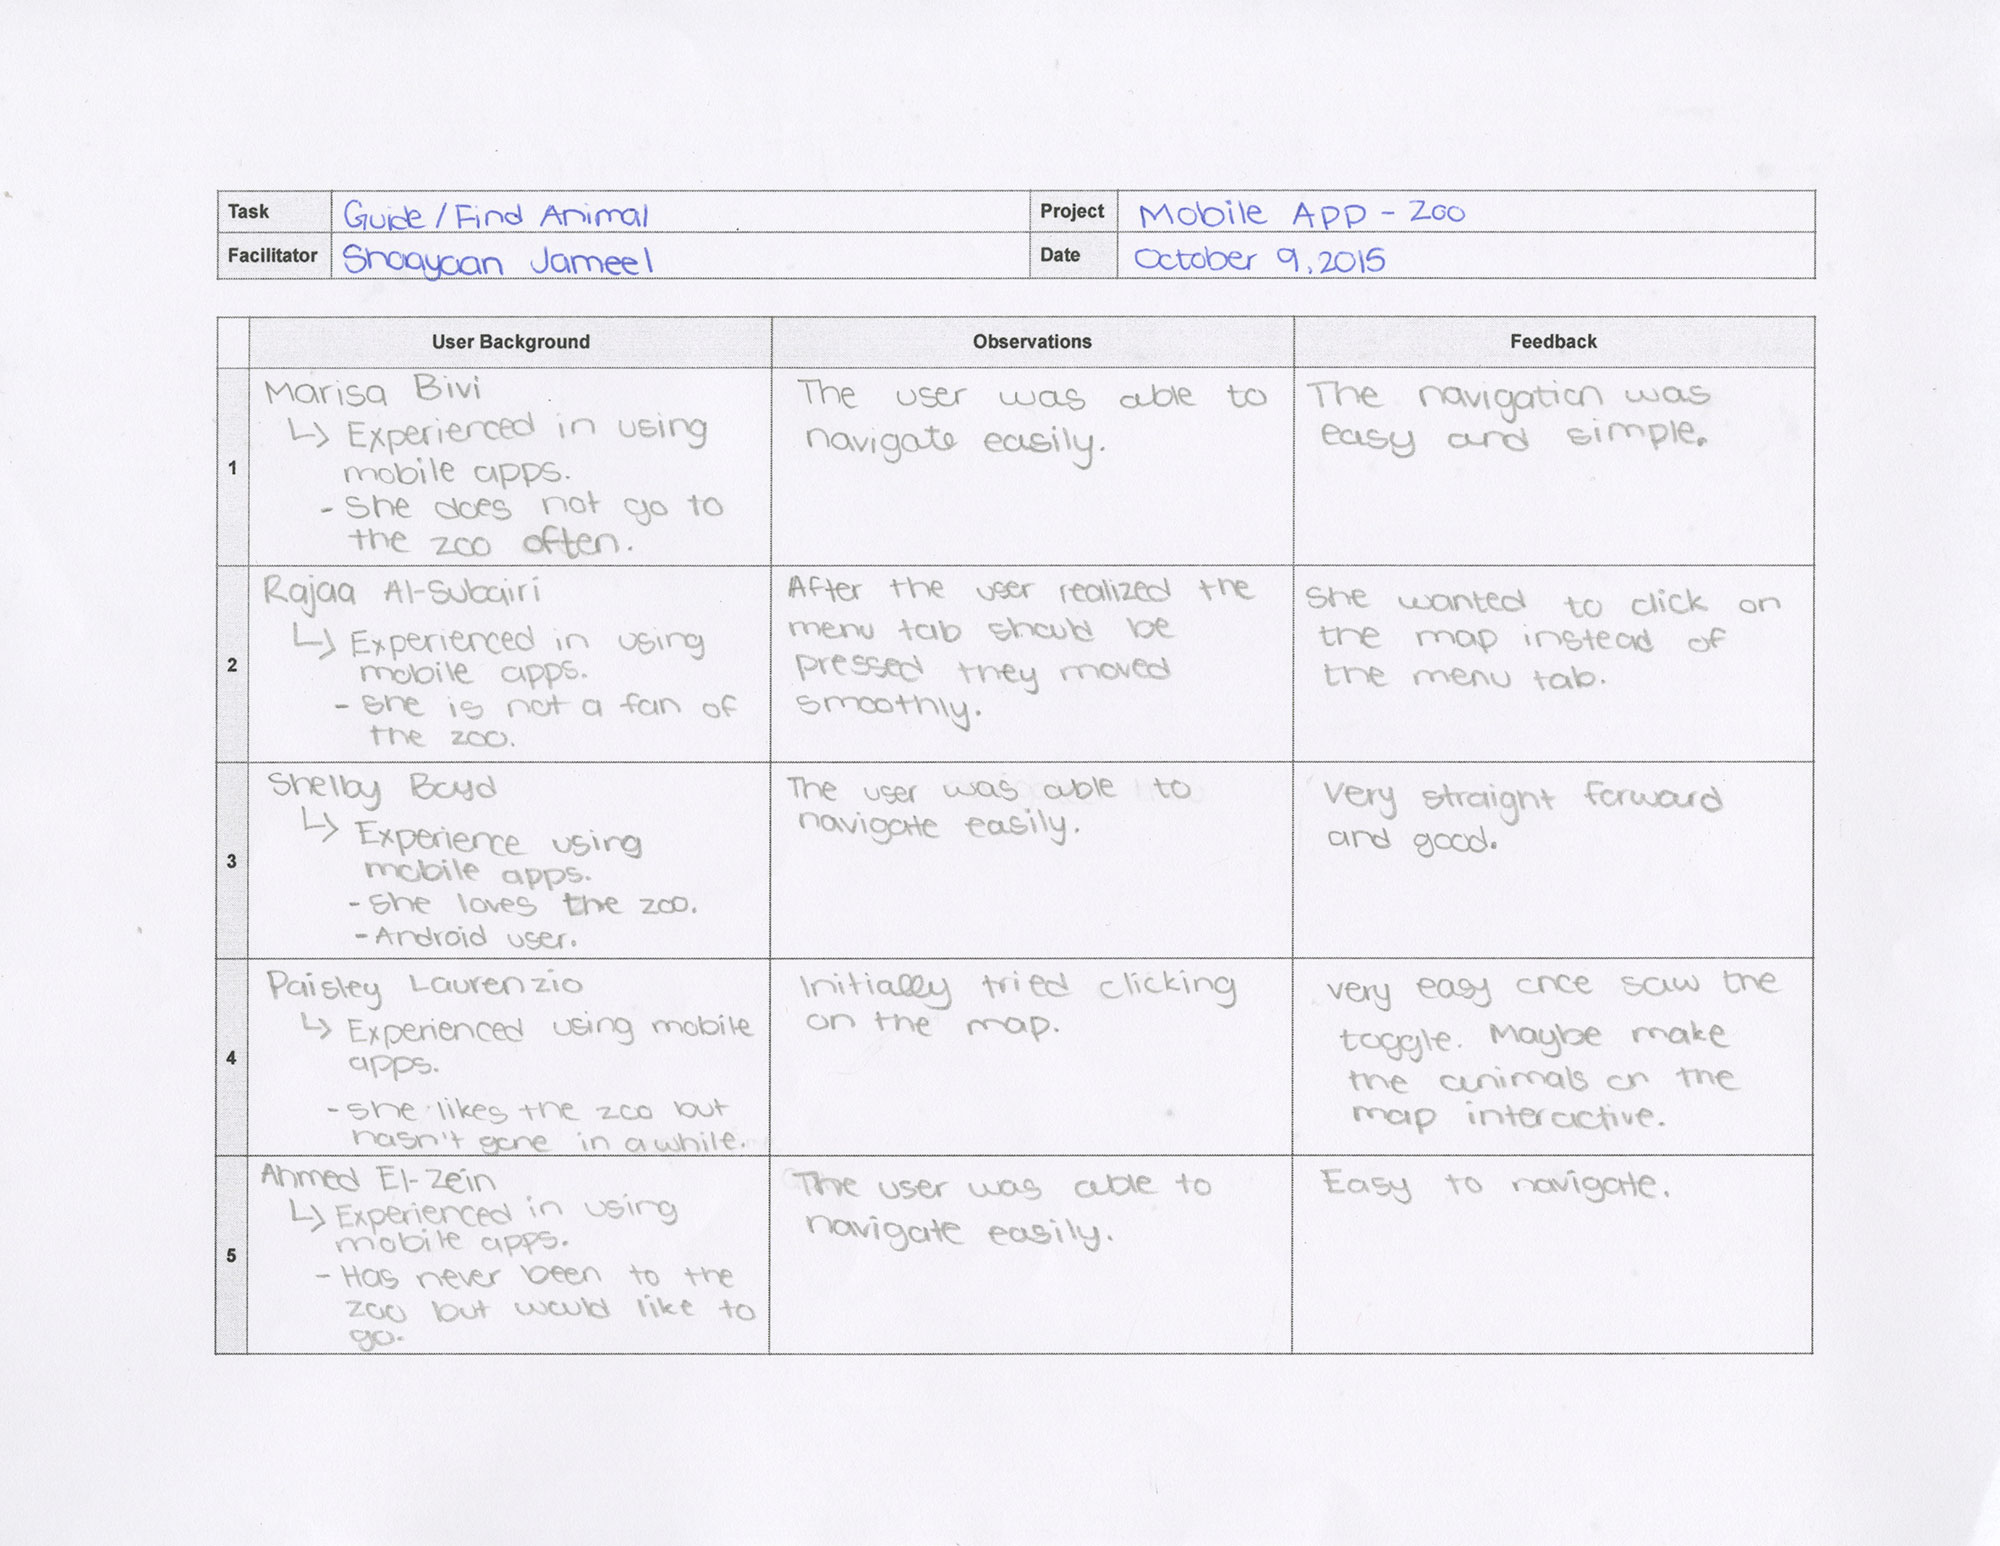 Task Guide/Find Animal Project Mobile App - Zoo
Facilitator Shaayaan Jameel Date October 9, 2015
User Background Observations Feedback
1
Marisa Bivi
↳ Experienced in using
mobile apps.
- She does not go to
the zoo often.
The user was able to
navigate easily.
The navigation was
easy and simple.
2
Rajaa Al-Subairi
↳ Experienced in using
mobile apps.
- she is not a fan of
the zoo.
After the user realized the
menu tab should be
pressed they moved
smoothly.
She wanted to click on
the map instead of
the menu tab.
3
Shelby Boyd
↳ Experience using
mobile apps.
- she loves the zoo.
- Android user.
The user was able to
navigate easily.
Very straight forward
and good.
4
Paisley Laurenzio
↳ Experienced using mobile
apps.
- she likes the zoo but
hasn't gone in a while.
Initially tried clicking
on the map.
very easy once saw the
toggle. Maybe make
the animals on the
map interactive.
5
Ahmed El-Zein
↳ Experienced in using
mobile apps.
- Has never been to the
zoo but would like to
go.
The user was able to
navigate easily.
Easy to navigate.